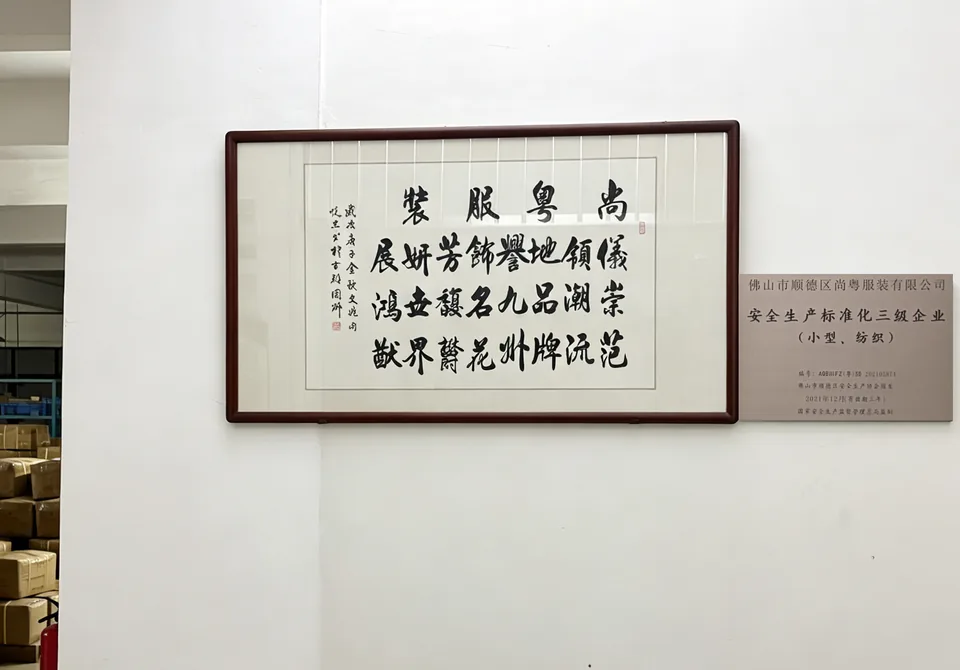 尚儀崇范
領潮流
粤地品牌
譽九州
服飾名花
芳馥欝
裝妍世界
展鴻猷
歲次庚子金秋
佛山市顺德区尚粤服装有限公司
安全生产标准化三级企业
（小型、纺织）
编号：
佛山市顺德区安全生产协会颁发
2021年12月(有效期三年)
国家安全生产监督管理总局监制